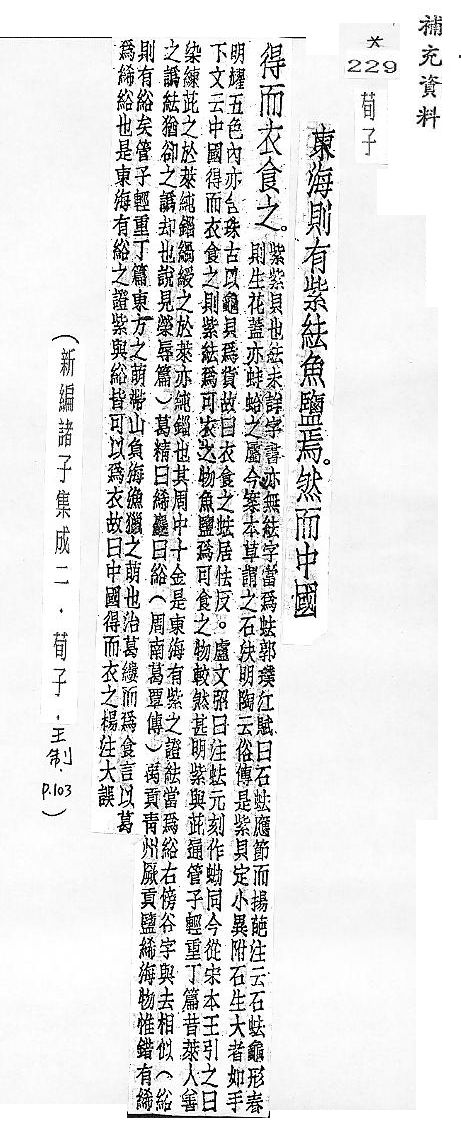 補充資料
*
229
荀子
東海則有紫紶魚鹽焉。然而中國
得而衣食之。
紫紫貝也紶未詳字書亦無紶字當爲𧉧郭璞江賦曰石𧉧應節而揚葩注云石𧉧龜形春
則生花蓋亦蚌蛤之屬今案本草謂之石決明陶云俗傳是紫貝定小異附石生大者如手
明耀五色內亦含珠古以龜貝爲貨故曰衣食之𧉧居怯反。盧文弨曰注𧉧元刻作蚴同今從宋本王引之曰
下文云中國得而衣食之則紫紶爲可衣之物魚鹽爲可食之物較然甚明紫與茈通管子輕重丁篇昔萊人善
染練茈之於萊純錙緺綬之於萊亦純錙也其周中十金是東海有紫之證紶當爲綌右傍谷字與去相似（綌
之譌紶猶卻之譌却也說見榮辱篇）葛精曰絺麤曰綌（周南葛覃傳）禹貢青州厥貢鹽絺海物惟錯有絺
則有綌矣管子輕重丁篇東方之萌帶山負海漁獵之萌也治葛縷而爲食言以葛
爲絺綌也是東海有綌之證紫與綌皆可以爲衣故曰中國得而衣之楊注大誤
（新編諸子集成二．荀子．王制．P.103）